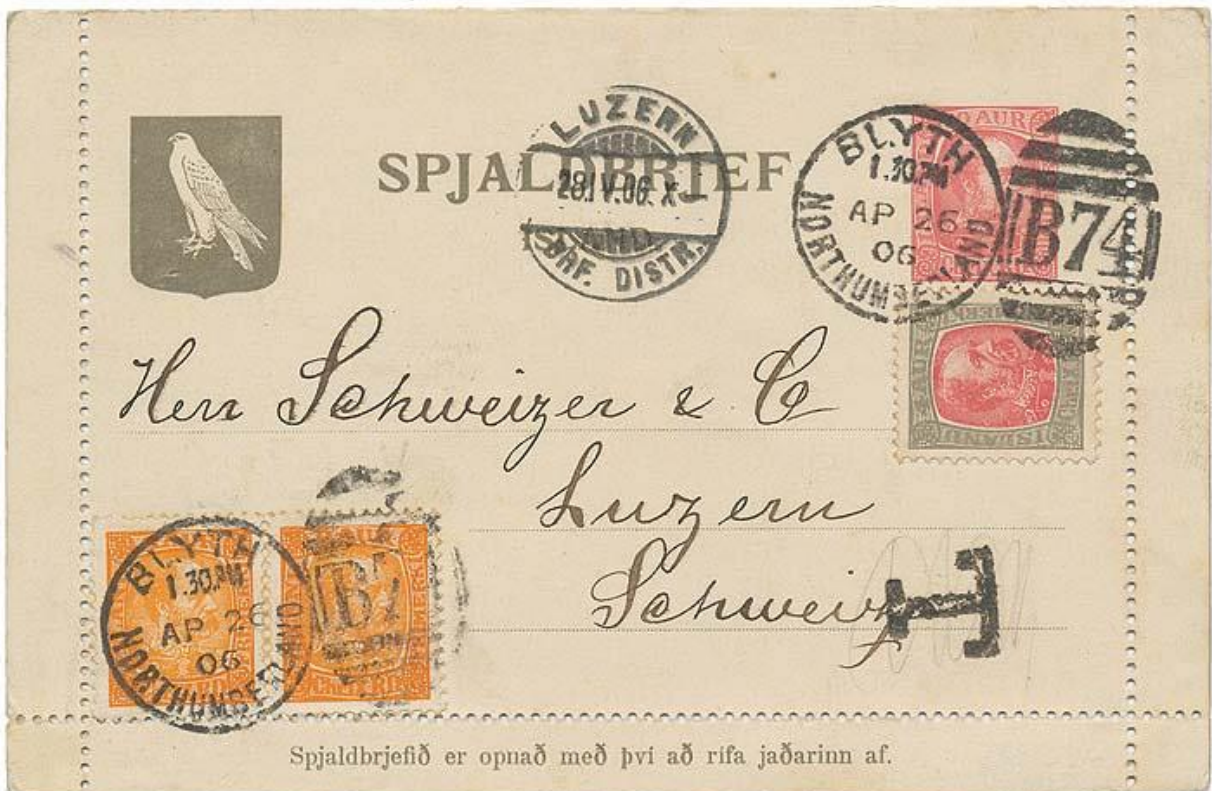 LUZERN
28.IV.06. X
BRF. DISTR.
SPJALDBRJEF
AUR
BLYTH
1.30PM
AP 26
06
NORTHUMBERLAND
B74
AUR
ISLAND
Herr Schweizer & C
Luzern
Schweiz
T
BLYTH
1.30PM
AP 26
06
NORTHUMBERLAND
B7
Spjaldbrjefið er opnað með því að rífa jaðarinn af.